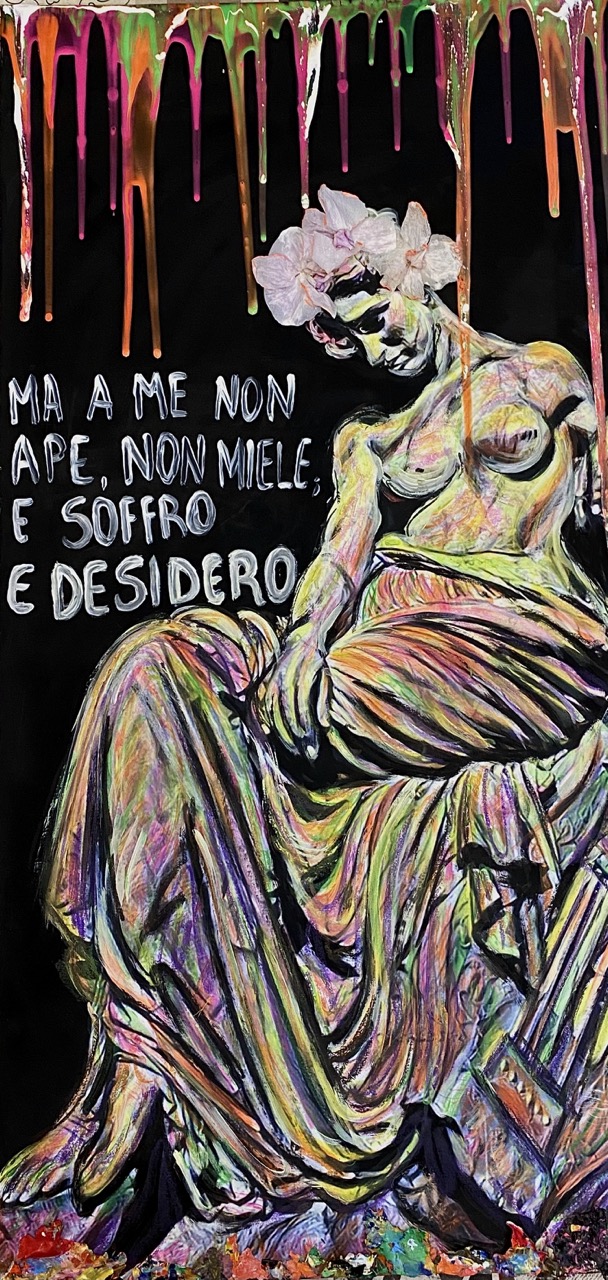 MA A ME NON
APE, NON MIELE;
E SOFFRO
E DESIDERO